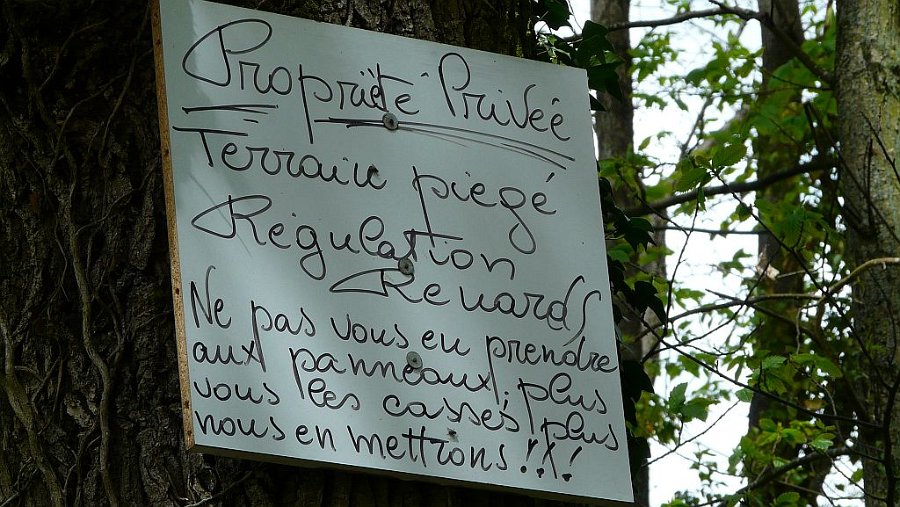 Propriété Privée
Terrain piegé
Régulation
Renards
Ne pas vous en prendre
aux panneaux, plus
vous les cassés plus
nous en mettrons !!!